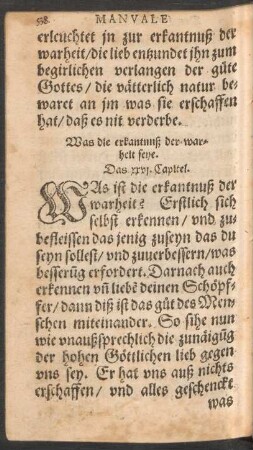 538. MANVALE
erleuchtet jn zur erkantnuß der
warheit/die lieb entzundet jhn zum
begirlichen verlangen der güte
Gottes/ die vätterlich natur be-
waret an jm was sie erschaffen
hat/ daß es nit verderbe.
Was die erkantnuß der war-
heit seye.
Das xxvj. Capitel.
WAs ist die erkantnuß der
warheit? Erstlich sich
selbst erkennen/ vnd zu-
befleissen das jenig zuseyn das du
seyn sollest/ vnd zuuerbessern/was
besserũg erfordert. Darnach auch
erkennen vñ liebē deinen Schöpf-
fer/ dann diß ist das gůt des Men-
schen miteinander. So sihe nun
wie vnaußsprechlich die zunäigũg
der hohen Göttlichen lieb gegen
vns sey. Er hat vns auß nichts
erschaffen/ vnd alles geschenckt
was